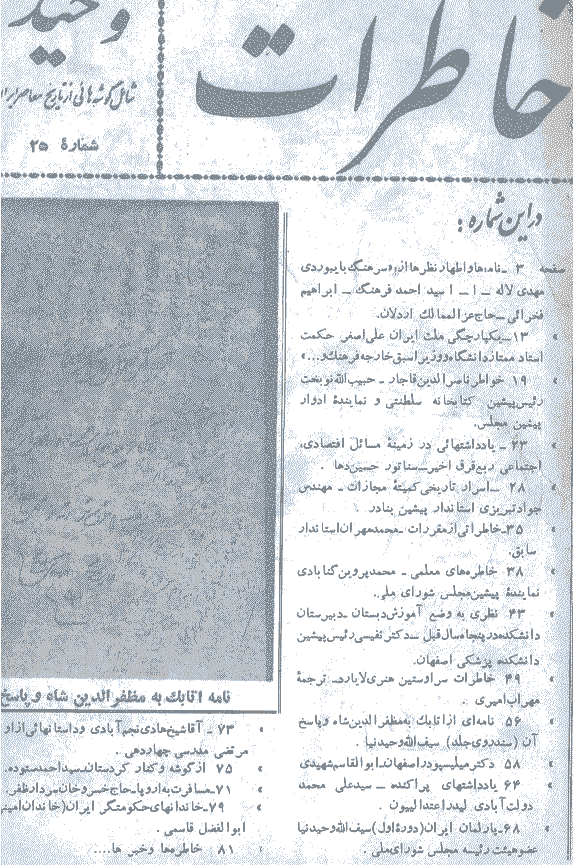 خاطرات
وحید
شامل گوشه هائی از تاریخ معاصر ایران
شمارهٔ ۲۵
در این شماره :
صفحه ۳ ـ نامه ها و اظهار نظرها از: سرهنگ بایبوردی
مهدی لاله ـ ا ـ ا سید احمد فرهنگ ـ ابراهیم
فخرائی ـ حاج عزالممالک اردلان.
» ۱۳ ـ یکپارچگی ملت ایران علی اصغر حکمت
استاد ممتاز دانشگاه و وزیر اسبق خارجه فرهنگ و...»
» ۱۹ خواطر ناصرالدین قاجار ـ حبیب الله نوبخت
رئیس پیشین کتابخانه سلطنتی و نمایندهٔ ادوار
پیشین مجلس.
» ۲۳ ـ یادداشتهائی در زمینهٔ مسائل اقتصادی،
اجتماعی ربع قرق اخیر ـ سناتور حسین دها .
» ۲۸ ـ اسرار تاریخی کمیتهٔ مجازات ـ مهندس
جواد تبریزی استاندار پیشین بنادر.
» ۳۵ـ خاطراتی از مقررات ـ محمد مهران استاندار
سابق.
» ۳۸ خاطره های معلمی ـ محمد پروین گنابادی
نمایندهٔ پیشین مجلس شورای ملی.
» ۴۳ نظری به وضع آموزش دبستان ـ دبیرستان
دانشکده در پنجاه سال قبل ـ دکتر نفیسی رئیس پیشین
دانشکده پزشکی اصفهان.
» ۴۹ خاطرات سر اوستین هنری لایارد ـ ترجمهٔ
مهراب امیری .
» ۵۶ نامه ای از اتابک به مظفرالدین شاه و پاسخ
آن (سند روی جلد) سیف الله وحیدنیا .
» ۵۸ دکتر میلیسپو در اصفهان ـ ابوالقاسم شهیدی
» ۶۴ یادداشتهای پراکنده ـ سید علی محمد
دولت آبادی لیدر اعتدالیون .
» ۶۸ـ پارلمان ایران (دورهٔ اول) سیف الله وحیدنیا
عضو هیئت رئیسه مجلس شورای ملی .
نامه اتابک به مظفرالدین شاه و پاسخ
» ۷۳ ـ آقا شیخ هادی نجم آبادی و داستانهائی از او
مرتضی مدرسی چهاردهی .
» ۷۵ از گوشه و کنار کردستان ـ سید احمد ستوده.
» ۷۱ـ مسافرت به اروپا ـ حاج خسرو خان سردار ظفر.
» ۷۹ـ خاندانهای حکومتگر ایران (خاندان امینی
ابوالفضل قاسمی .
» ۸۱ خاطره ها و خبر ها....